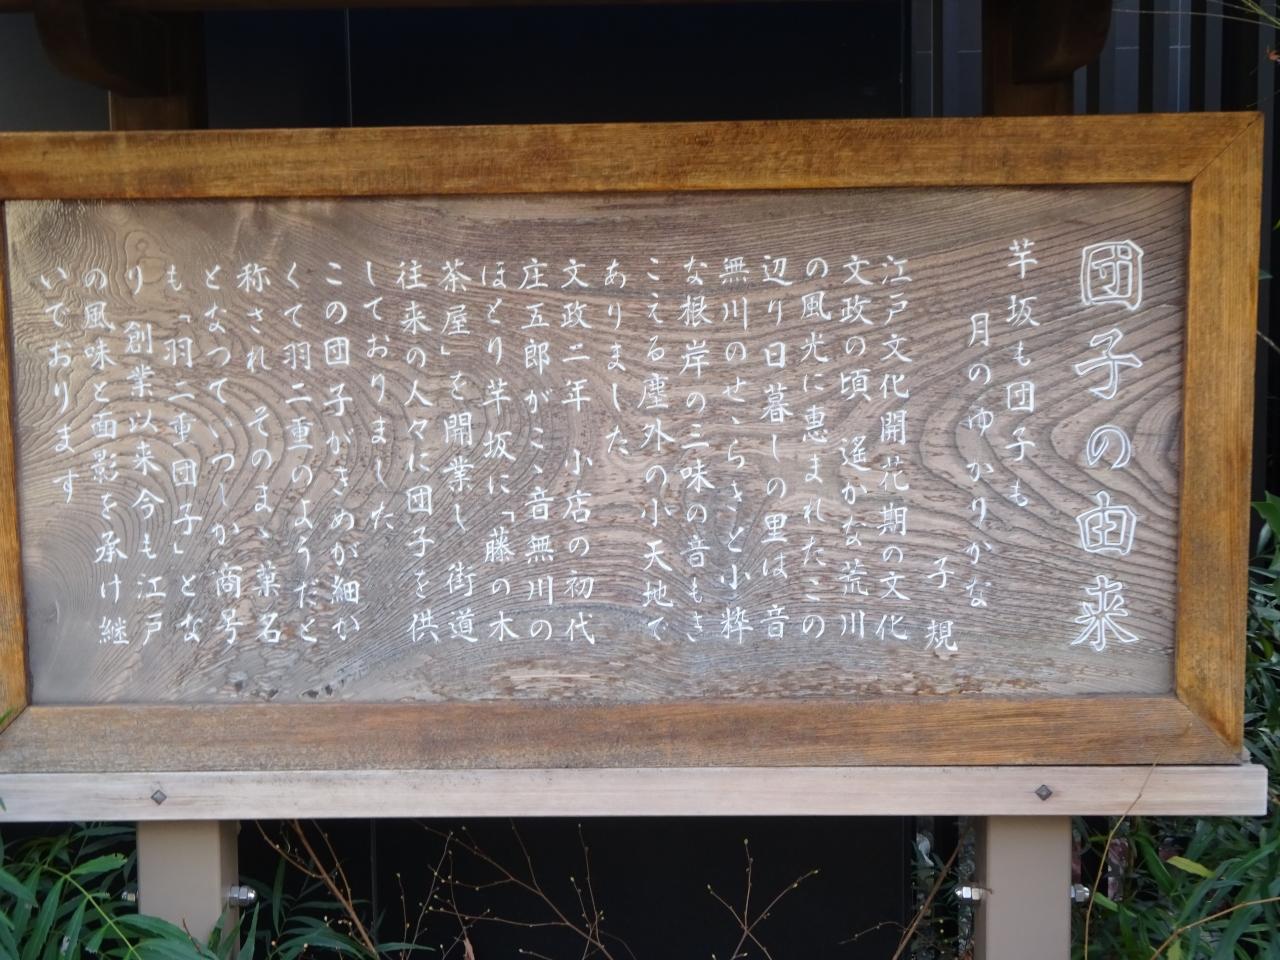 団子の由来
芋坂も団子も
月のゆかりかな
子規
江戸文化開花期の文化
文政の頃 遙かな荒川
の風光に恵まれたこの
辺り日暮しの里は 音
無川のせゝらぎと小粋
な根岸の三味の音もき
こえる塵外の小天地で
ありました
文政二年 小店の初代
庄五郎がこゝ音無川の
ほとり芋坂に「藤の木
茶屋」を開業し 街道
往来の人々に団子を供
しておりました
この団子がきめが細か
くて羽二重のようだと
称され そのまゝ菓名
となつていつしか商号
も「羽二重団子」とな
り 創業以来今も江戸
の風味と面影を承け継
いでおります